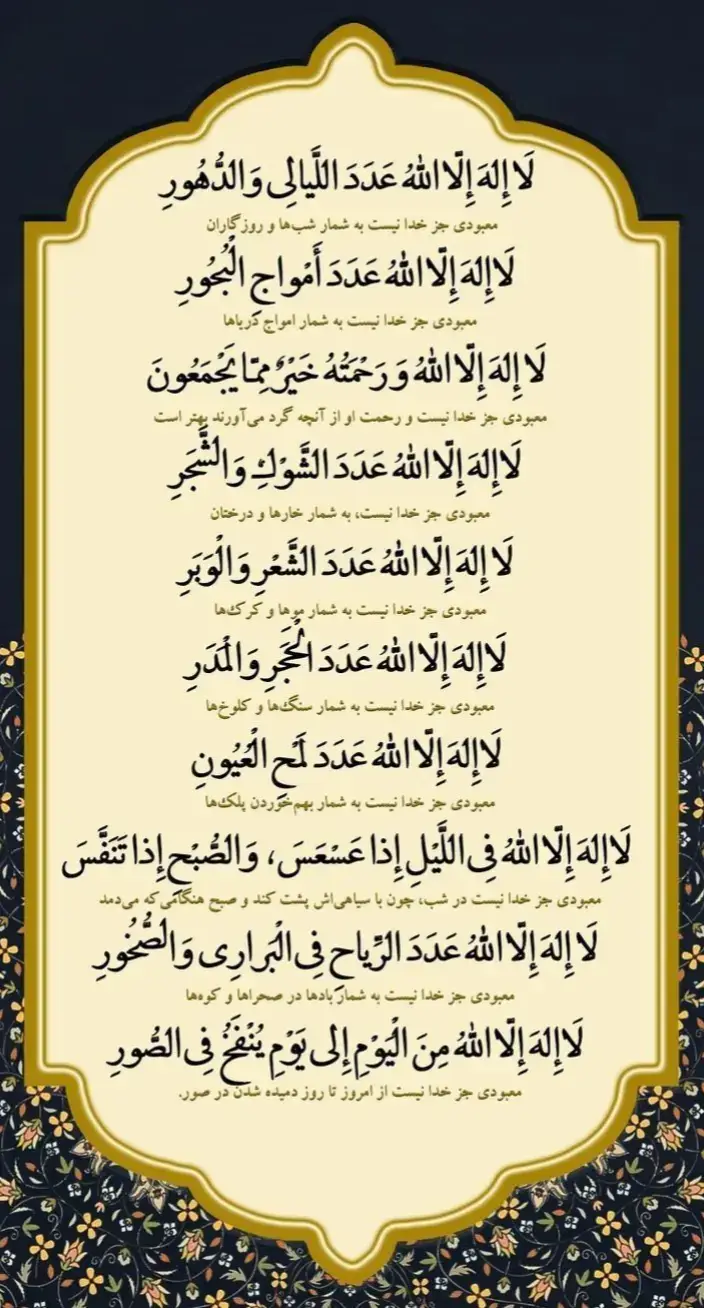 لَا إِلهَ إِلّا اللهُ عَدَدَ اللَّیالِی وَالدُّهُورِ
معبودی جز خدا نیست به شمار شب‌ها و روزگاران
لَا إِلهَ إِلّا اللهُ عَدَدَ أَمْواجِ الْبُحُورِ
معبودی جز خدا نیست به شمار امواج دریاها
لَا إِلهَ إِلّا اللهُ وَ رَحْمَتُهُ خَیْرٌ مِمّا یَجْمَعُونَ
معبودی جز خدا نیست و رحمت او از آنچه گرد می‌آورند بهتر است
لَا إِلهَ إِلّا اللهُ عَدَدَ الشَّوْكِ وَالشَّجَرِ
معبودی جز خدا نیست، به شمار خارها و درختان
لَا إِلهَ إِلّا اللهُ عَدَدَ الشَّعْرِ وَالْوَبَرِ
معبودی جز خدا نیست به شمار موها و کرک‌ها
لَا إِلهَ إِلّا اللهُ عَدَدَ الْحَجَرِ وَالْمَدَرِ
معبودی جز خدا نیست به شمار سنگ‌ها و کلوخ‌ها
لَا إِلهَ إِلّا اللهُ عَدَدَ لَمْحِ الْعُیُونِ
معبودی جز خدا نیست به شمار بهم‌خوردن پلک‌ها
لَا إِلهَ إِلّا اللهُ فِی اللَّیْلِ إِذا عَسْعَسَ، وَالصُّبْحِ إِذا تَنَفَّسَ
معبودی جز خدا نیست در شب، چون با سیاهی‌اش پشت کند و صبح هنگامی‌که می‌دمد
لَا إِلهَ إِلّا اللهُ عَدَدَ الرِّیاحِ فِی الْبَرارِی وَالصُّخُورِ
معبودی جز خدا نیست به شمار بادها در صحراها و کوه‌ها
لَا إِلهَ إِلّا اللهُ مِنَ الْیَوْمِ إِلی یَوْمِ یُنْفَخُ فِی الصُّورِ
معبودی جز خدا نیست از امروز تا روز دمیده شدن در صور.